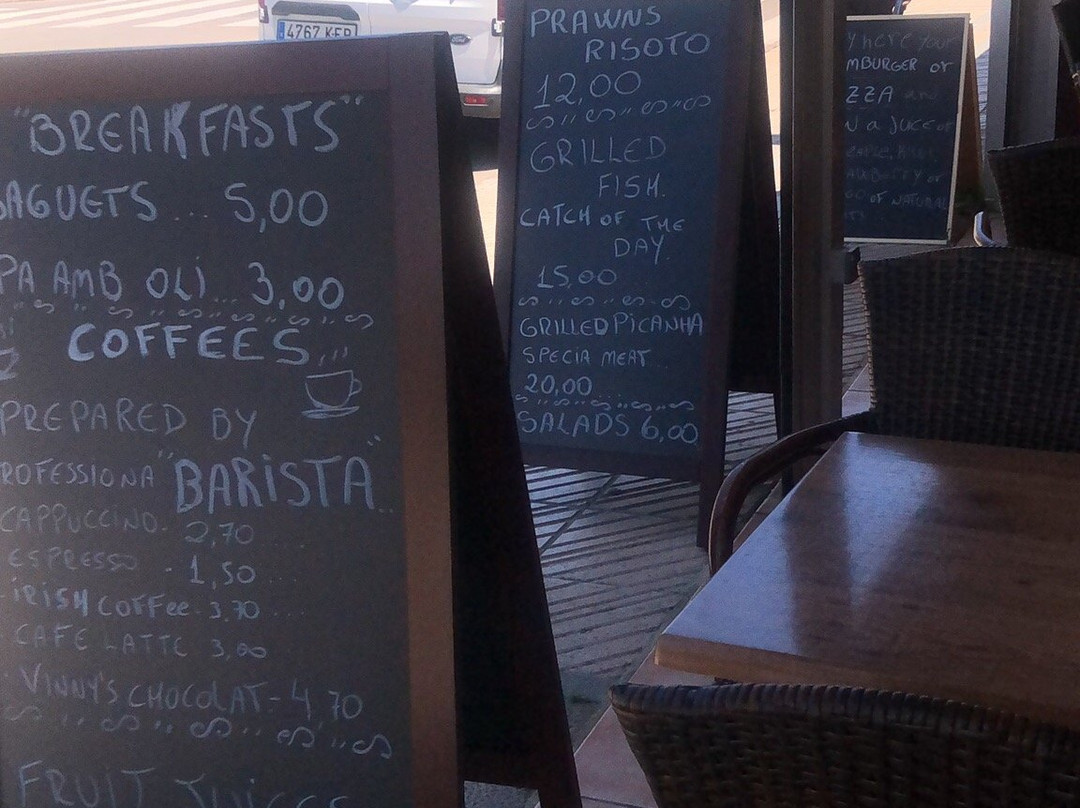 "BREAKFASTS"
BAGUETS ... 5,00
PA AMB OLI ... 3,00
COFFEES
PREPARED BY
ROFESSIONA "BARISTA"..
CAPPUCCINO. 2,70
ESPRESSO - 1,50
IRISH COFFEE 3,70
CAFE LATTE 3,00
VINNY'S CHOCOLAT - 4,70
FRUIT JUICES
4767 KFR
PRAWNS
RISOTO
12,00
GRILLED
FISH.
CATCH OF THE
DAY.
15,00
GRILLED PICANHA
SPECIA MEAT
20,00...
SALADS 6,00
Y here your
MBURGER or
ZZA and
N a JUCE of
OF NATURAL